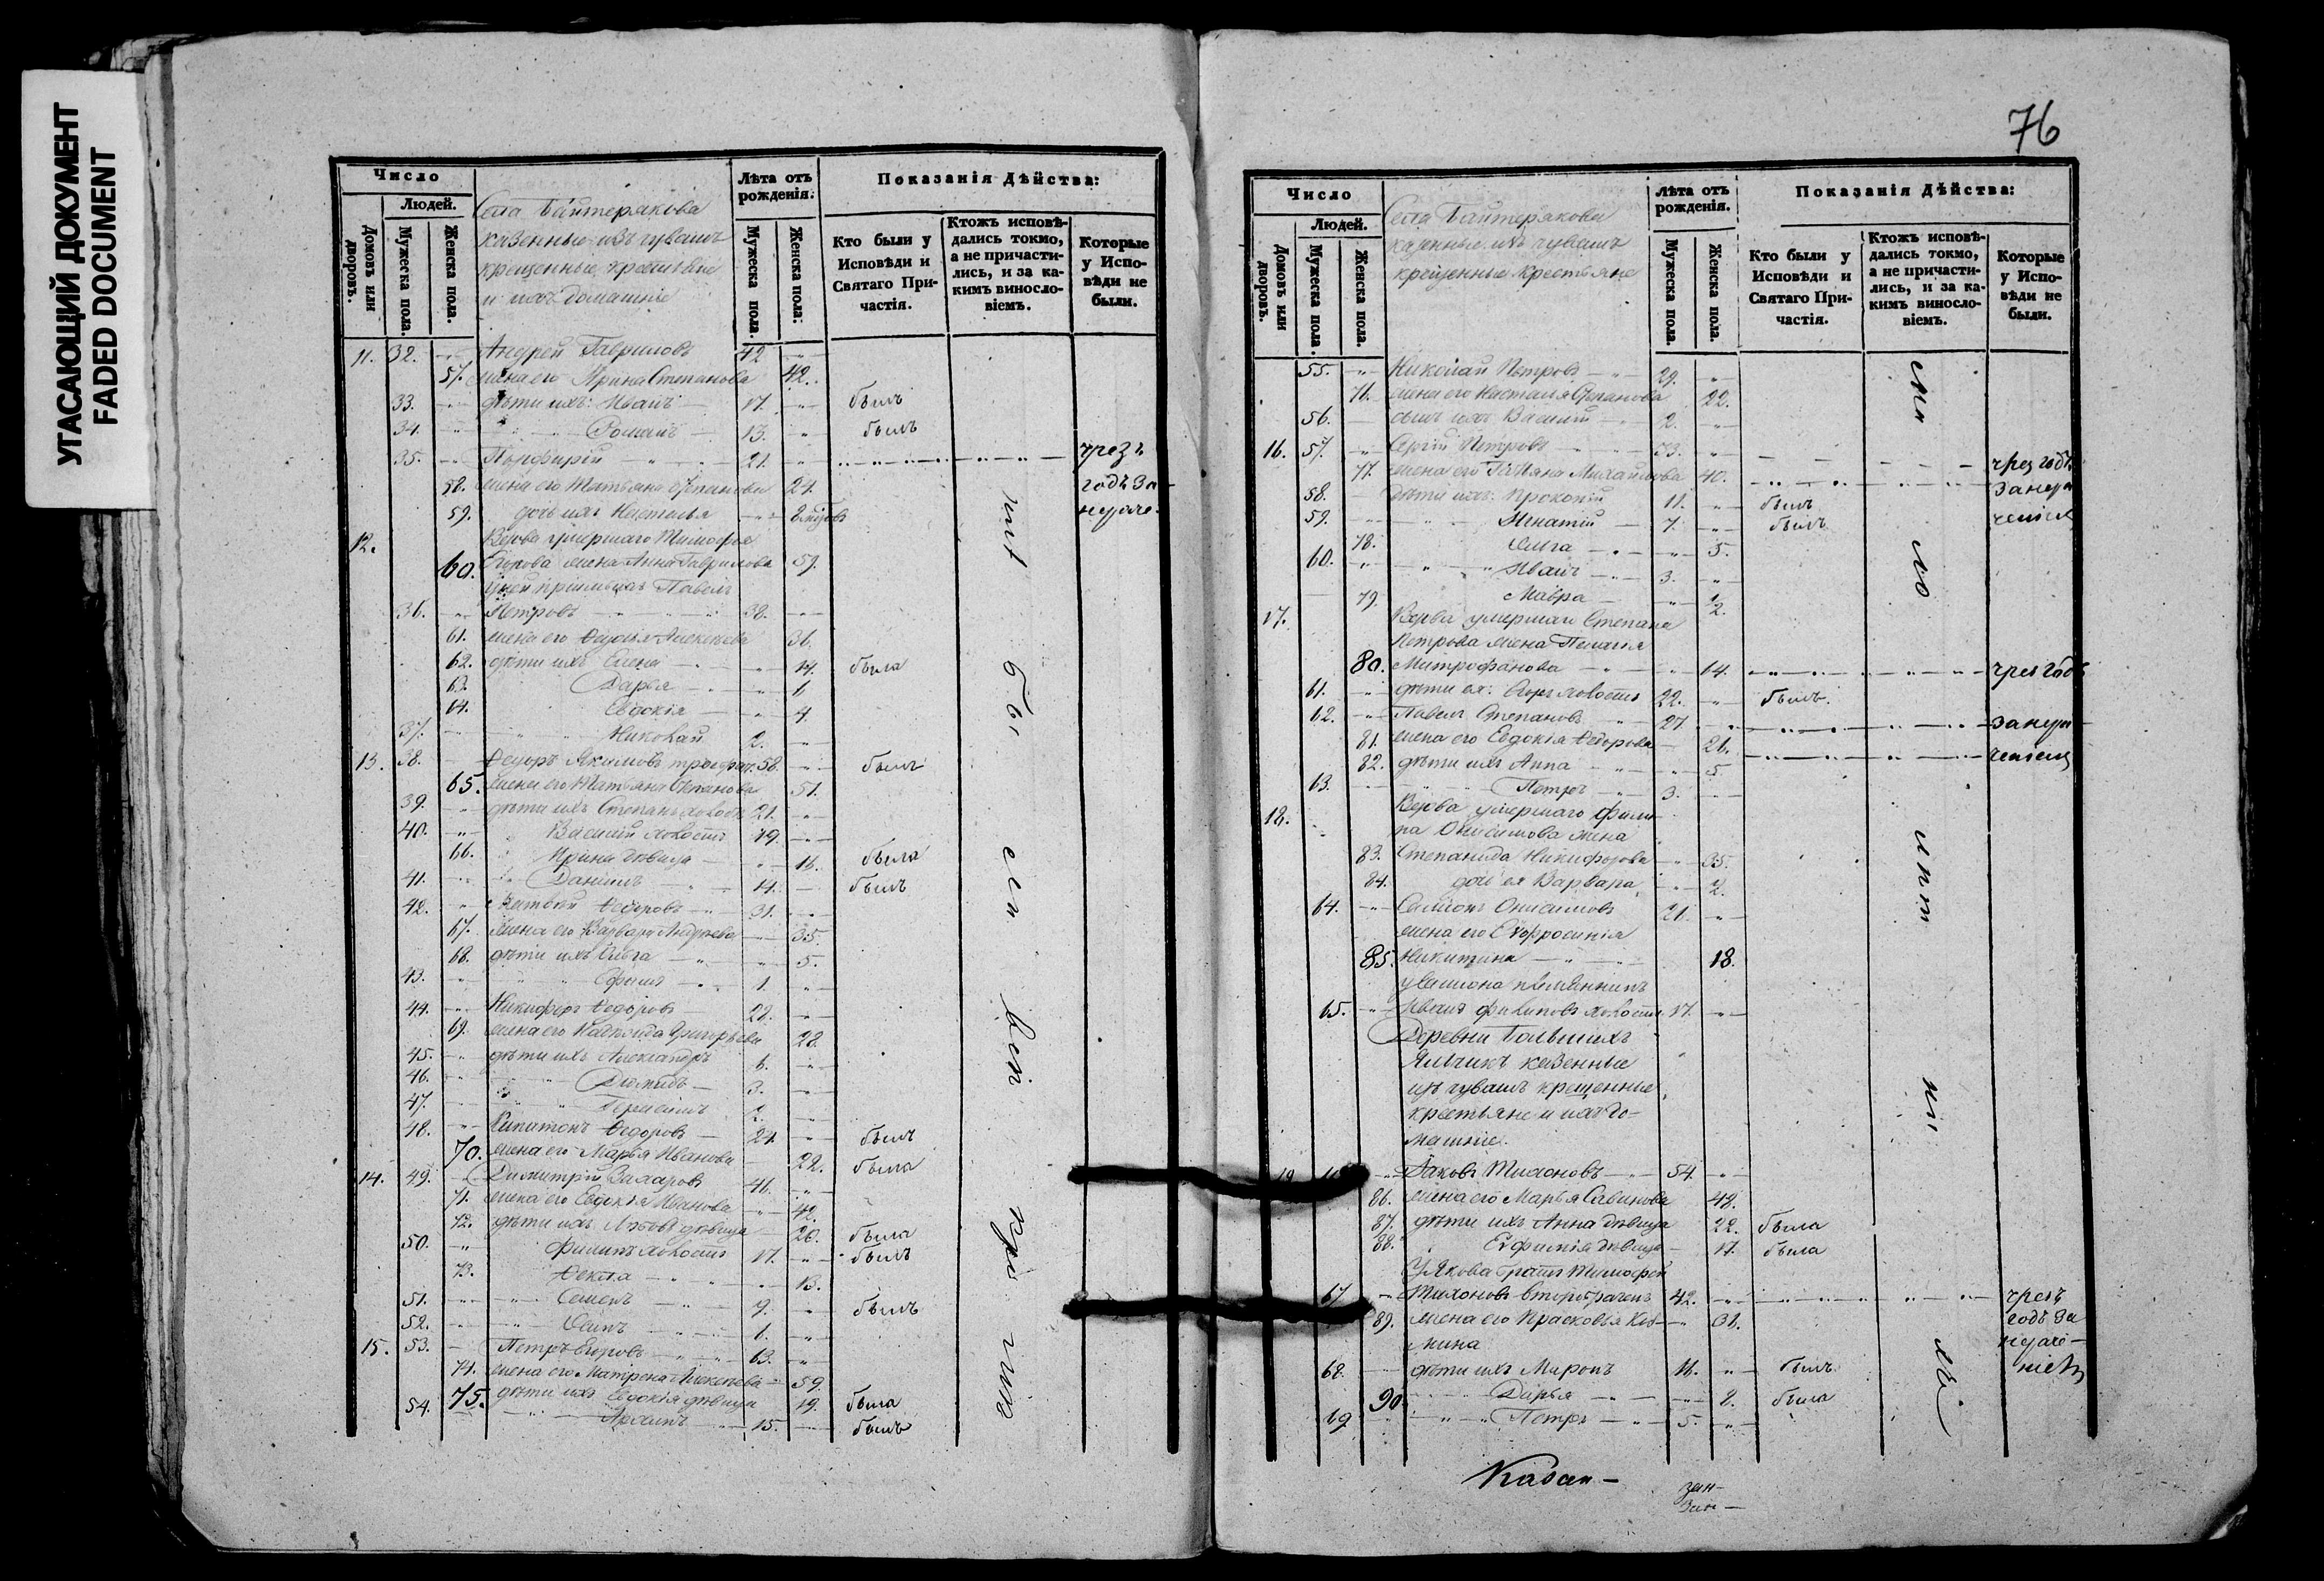 УГАСАЮЩИЙ ДОКУМЕНТ
FADED DOCUMENT
Число
Людей.
Домовъ или дворовъ.
Мужеска пола.
Женска пола.
Села Байтерякова
казенные изъ чувашъ
крещенные крестьяне
и ихъ домашніе
Лѣта отъ рожденія.
Мужеска пола.
Женска пола:
Показанія Дѣйства:
Кто были у Исповѣди и Святаго Причастія.
Ктожъ исповѣдались токмо, а не причастились, и за какимъ винословіемъ.
Которые у Исповѣди не были.
11. 32. Андрей Гавриловъ 42
57. жена его Ирина Степанова 42.
33. дѣти ихъ: Иванъ 17. былъ
34. Романъ 13. былъ
35. Порфирій 21. чрезъ
58. жена его Татьяна Степанова 24. годъ за
59. дочь ихъ Настасья нераче-
12. Вдова умершаго Тимофея
60. Егорова жена Анна Гаврилова 59.
у ней пріимышъ Павелъ
36. Петровъ 38.
61. жена его Ѳедосья Алексѣева 36.
62. дѣти ихъ Елена 14. была
63. Дарья 6
64. Евдокія 4.
37. Николай 2.
13. 38. Ѳедоръ Якимовъ 58. былъ
65. жена его Татьяна Степанова 51.
39. дѣти ихъ Степанъ холостъ 21.
40. Василій холостъ 19.
66. Ирина дѣвица 16. была
41. Даніилъ 14. былъ
42. Матвѣй Ѳедоровъ 31.
67. жена его Варвара Андреева 35.
68. дѣти ихъ Ольга 5.
43. Ефимъ 1.
44. Никифоръ Ѳедоровъ 28.
69. жена его Надежда Григорьева 28.
45. дѣти ихъ Александръ 6.
46. Діомидъ 3.
47. Герасимъ 2.
48. Капитонъ Ѳедоровъ 24. былъ
70. жена его Марья Иванова 22. была
14. 49. Димитрій Захаровъ 46.
71. жена его Евдокія Иванова 42.
72. дѣти ихъ Любовь дѣвица 20. была
50. Филипъ холостъ 17. былъ
73. Ѳекла 13.
51. Семенъ 9. былъ
52. Осипъ 6.
15. 53. Петръ Егоровъ 63.
74. жена его Матрена Алексѣева 59.
75. дѣти ихъ Евдокія дѣвица 19. была
54. Архипъ 15. былъ
76
Число
Людей.
Домовъ или дворовъ.
Мужеска пола.
Женска пола.
Села Байтерякова
казенные изъ чувашъ
крещенные крестьяне
Лѣта отъ рожденія.
Мужеска пола.
Женска пола.
Показанія Дѣйства:
Кто были у Исповѣди и Святаго Причастія.
Ктожъ исповѣдались токмо, а не причастились, и за какимъ винословіемъ.
Которые у Исповѣди не были.
55. Николай Петровъ 29.
76. жена его Настасья Степанова 22.
56. сынъ ихъ Василій 2.
16. 57. Сергій Петровъ 53. чрез годъ
77. жена его Татьяна Михайлова 40. за нера
58. дѣти ихъ: Прокопій 11. былъ ченіемъ
59. Игнатій 7. былъ
78. Ольга 5.
60. Иванъ 3.
79. Мавра 1/2.
17. Вдова умершаго Степана
Петрова жена Пелагія
80. Митрофанова 64. чрез годъ
61. дѣти ея: Егоръ холостъ 22. былъ.
62. Павелъ Степановъ 27. за нера
81. жена его Евдокія Ѳедорова 26. ченіемъ
82. дѣти ихъ Анна 5.
63. Петръ 3.
18. Вдова умершаго Филип
па Онисимова жена
83. Степанида Никифорова 35.
84. дочь ея Варвара 2.
64. Самсонъ Онисимовъ 21.
жена его Ефросинія
85. Никитина 18.
у Самсона племянникъ
65. Иванъ Филиповъ холостъ 17.
Деревни Большихъ
Яльчикъ казенные
изъ чувашъ крещенные
крестьяне и ихъ до-
машніе.
19 Яковъ Тихоновъ 54.
86. жена его Марья Савинова 48.
87. дѣти ихъ Анна дѣвица 22. была
88. Евфимія дѣвица 17. была
У Якова братъ Тимофей
67 Тихоновъ второбраченъ 42. чрезъ
89. жена его Прасковья Коз- 31. годъ за
мина нераче-
68. дѣти ихъ Миронъ 16. былъ ніемъ
90. Дарья 8. была
69 Петръ 5.
Казан-